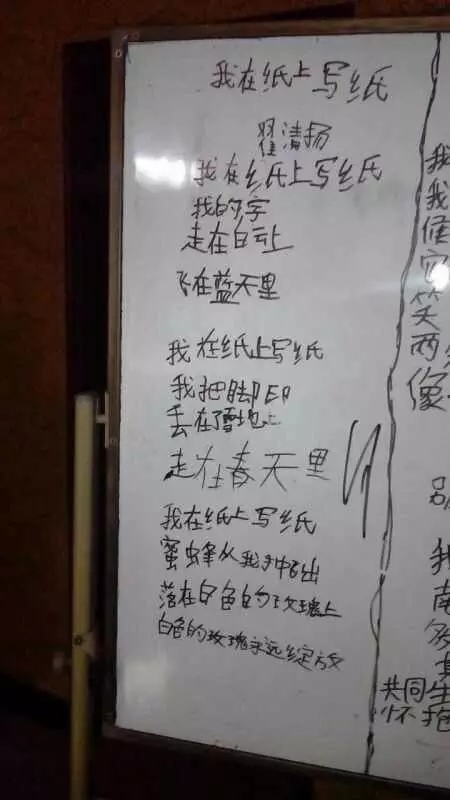 我在纸上写纸
翟清扬
我在纸上写纸
我的字
走在白云上
飞在蓝天里
我在纸上写纸
我把脚印
丢在雪地上
走在春天里
我在纸上写纸
蜜蜂从我手中飞出
落在白色的玫瑰上
白色的玫瑰永远绽放
我
我
候
笑
两
像
别
我
南
共同生
怀抱